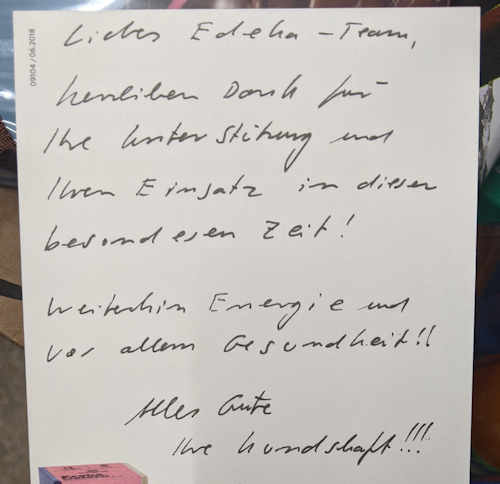 Liebes Edeka-Team,
herzlichen Dank für
Ihre Unterstützung und
Ihren Einsatz in dieser
besonderen Zeit!
Weiterhin Energie und
vor allem Gesundheit!!
Alles Gute
Ihre Kundschaft!!!
09104 / 06.2018